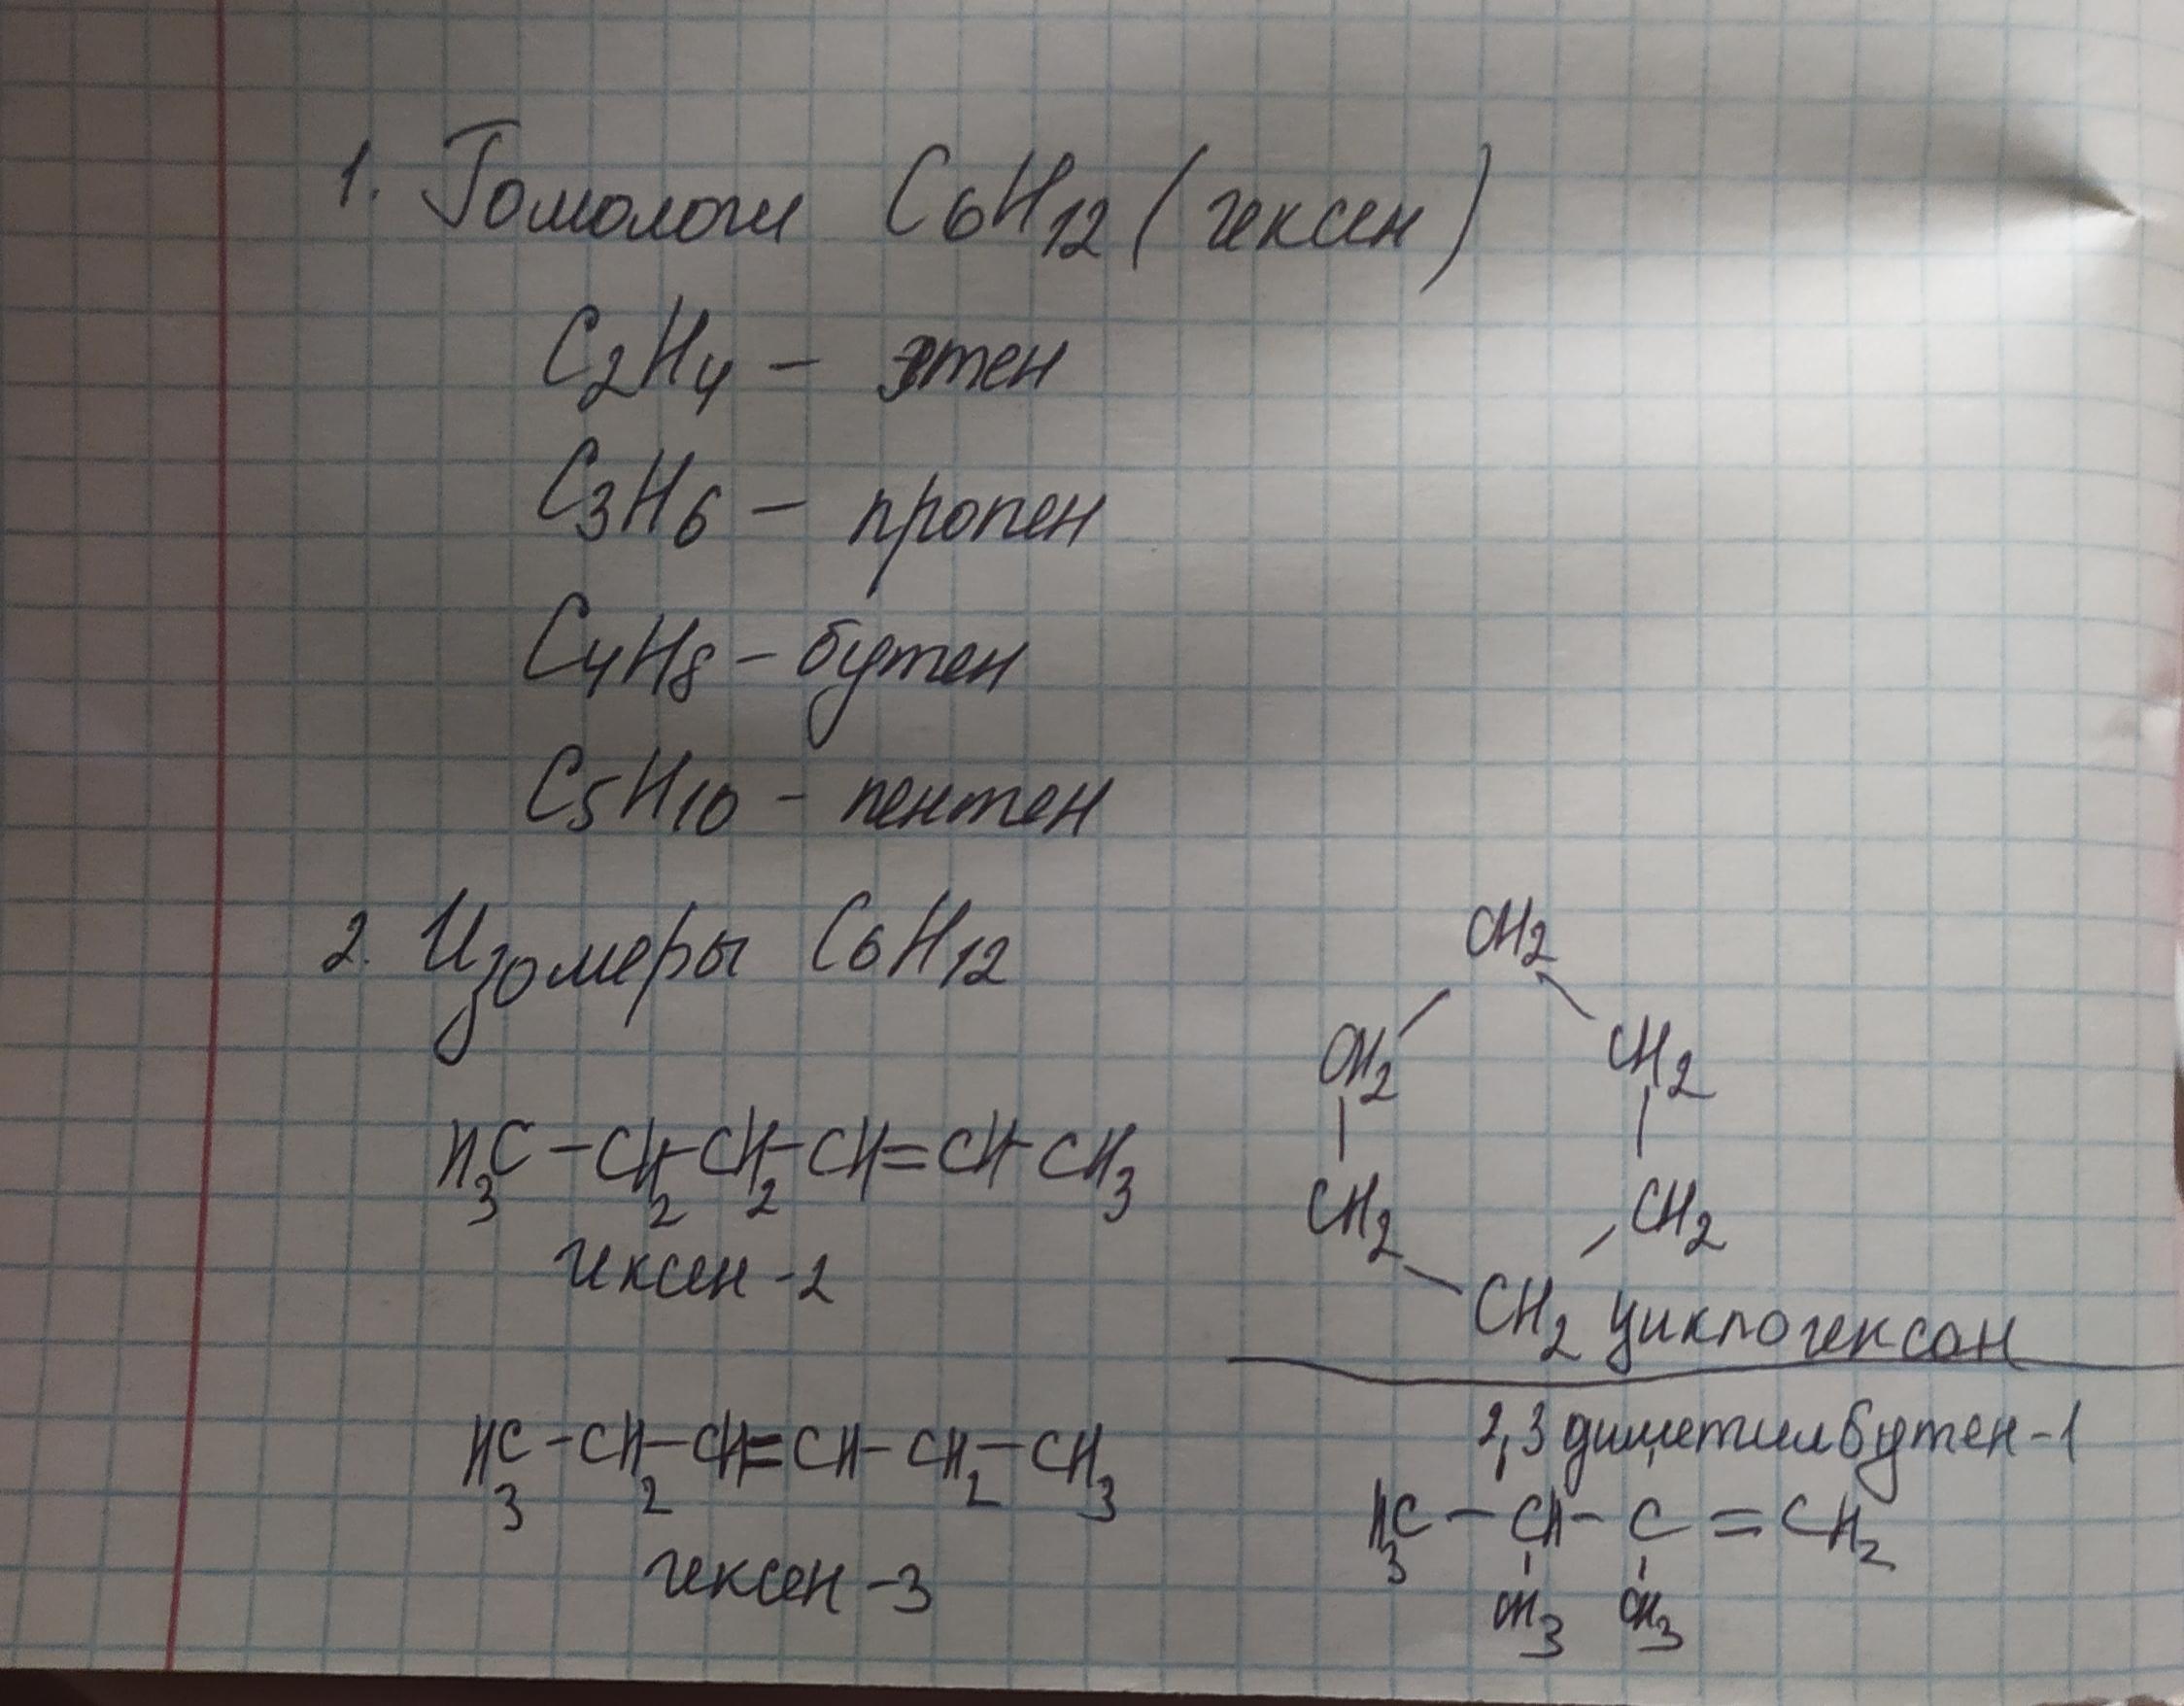 1. Гомологи C6H12 (гексен)
C2H4 – этен
C3H6 – пропен
C4H8 – бутен
C5H10 – пентен
2. Изомеры C6H12
H3C – CH2 – CH2 – CH = CH – CH3
гексен – 2
H3C – CH2 – CH = CH – CH2 – CH3
гексен – 3
CH2
CH2 CH2
CH2 CH2
CH2 циклогексан
2,3 диметилбутен – 1
H3C – CH – C = CH2
CH3 CH3